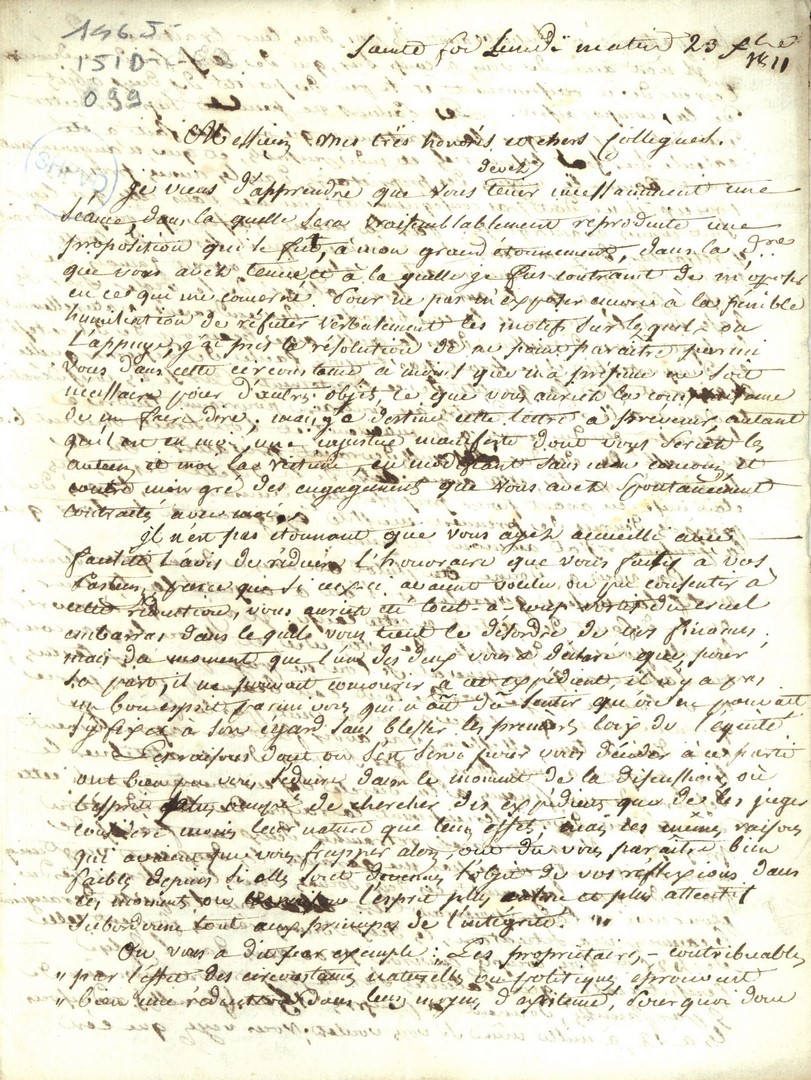 1465
151D
099
Sainte foi Lundi matin 23 1811
Messieurs mes très honorés et chers Collègues.
devez
Je viens d'apprendre que vous tenir incessamment une
séance, dans la quelle sera vraisemblablement reproduite une
proposition qui le fut, à mon grand étonnement, dans la dre
que vous avez tenue et à la quelle je fus contraint de m'opposer
en ce qui me concerne. Pour ne pas m'exposer encore à la pénible
humiliation de réfuter verbalement les motifs sur lesquels on
l'appuye, j'ai pris la résolution de ne point paraître parmi
vous dans cette circonstance à moins que ma présence ne soit
nécessaire pour d'autres objets, ce que vous aurez la
de me faire dire; mais j'ai destiné cette lettre à prévenir, autant
qu'il est en moi, une injustice manifeste dont vous seriez les
auteurs et moi la victime, en sans mon concours et
contre mon gré des engagements que vous avez spontanément
contractés avec moi.
Il n'est pas étonnant que vous ayez accueilli avec
facilité l'avis de réduire l'honoraire que vous faites à vos
Pasteurs, parce que si ceux-ci avaient voulu ou pu consentir à
cette réduction, vous auriez été tout à coup du cruel
embarras dans lequel vous tient le désordre de vos finances.
mais du moment que l'un des deux vous a déclaré que, pour
sa part, il ne pouvait concourir à cet expédient il n'y a pas
un bon esprit parmi vous qui n'ait dû sentir qu'on ne pouvait
s'y fixer à son égard sans blesser les premières loix de l'équité.
Les raisons dont on s'est servi pour vous décider à ce parti
ont bien pu vous séduire dans le moment de la discussion où
l'esprit plus occupé de chercher des expédients que de les juger
considère moins leur nature que leurs effets; mais ces mêmes raisons
qui avaient pu vous frapper alors, ont dû vous paraître bien
faibles depuis si elles sont devenues l'objet de vos réflexions dans
ces moments où l'esprit plus calme et plus attentif
subordonne tout aux principes de l'intégrité.
On vous a dit par exemple: „Les propriétaires - contribuables
„ par l'effet des circonstances naturelles ou politiques éprouvent
„ bien une réduction dans leurs moyens d'existence, pourquoi donc